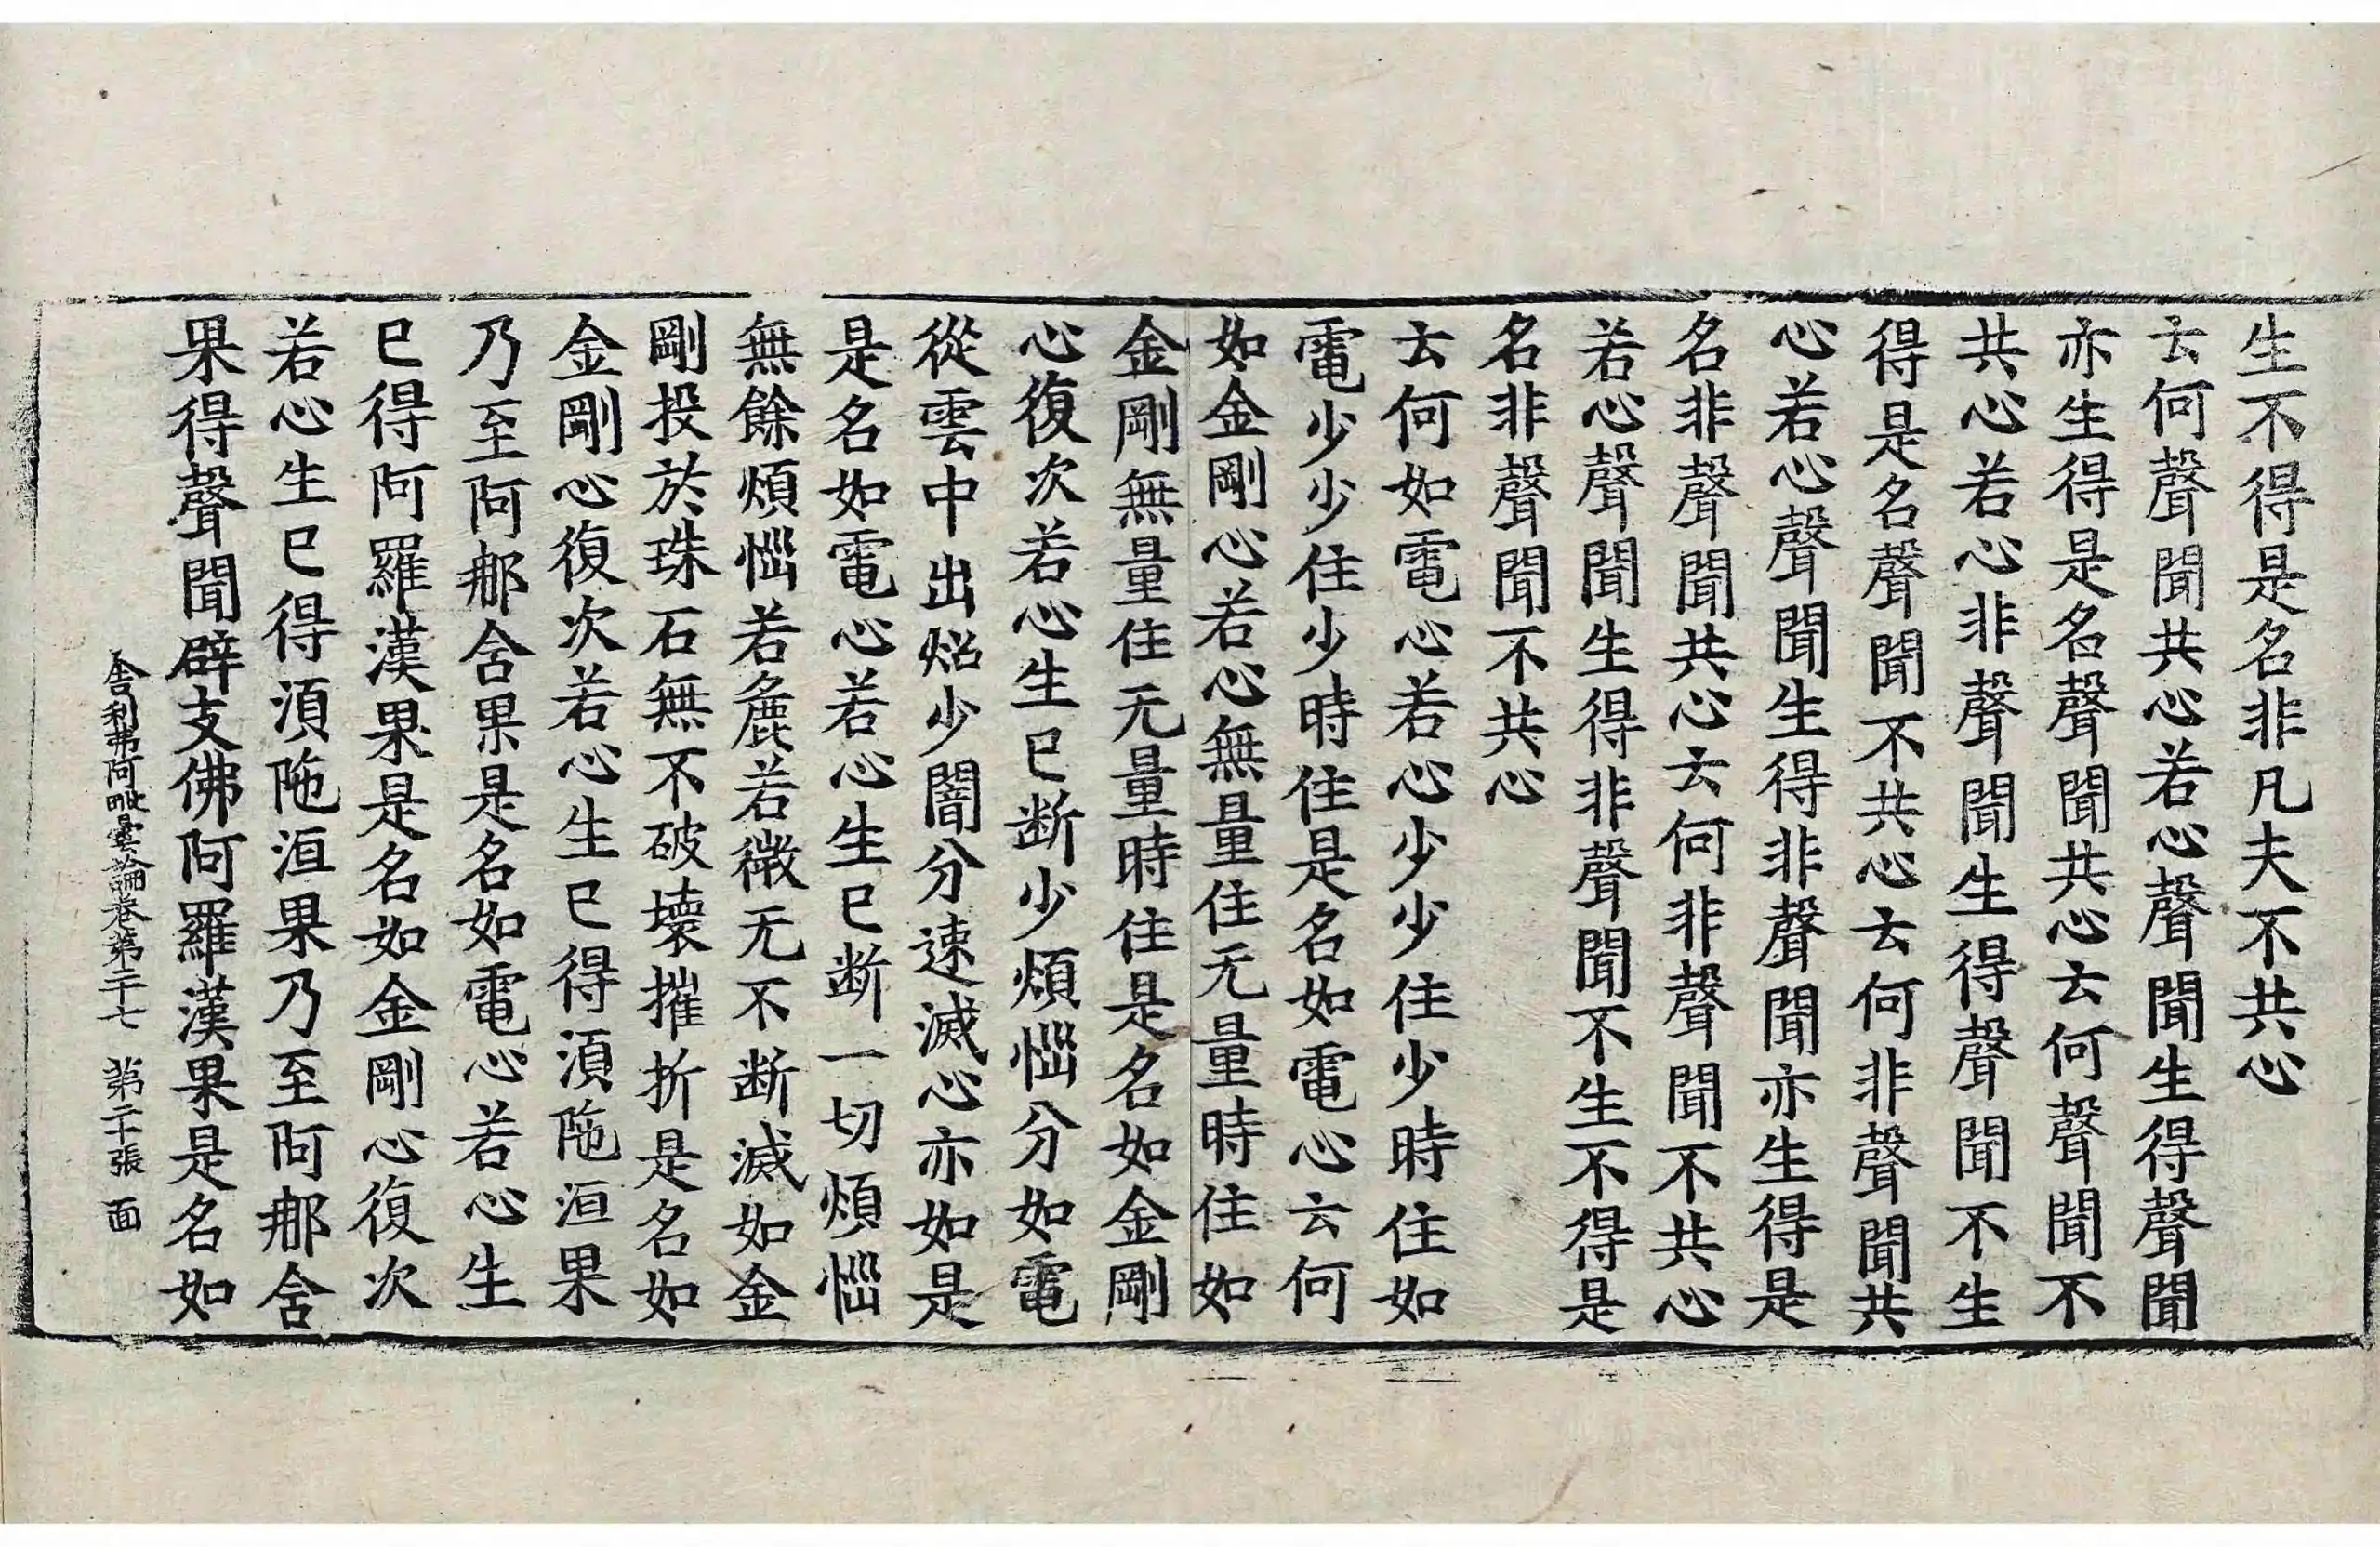 生不得是名非凡夫不共心
云何聲聞共心若心聲聞生得聲聞
亦生得是名聲聞共心云何聲聞不
共心若心非聲聞生得聲聞不生
得是名聲聞不共心云何非聲聞共
心若心聲聞生得非聲聞亦生得是
名非聲聞共心云何非聲聞不共心
若心聲聞生得非聲聞不生不得是
名非聲聞不共心
云何如電心若心少少住少時住如
電少少住少時住是名如電心云何
如金剛心若心無量住无量時住如
金剛無量住无量時住是名如金剛
心復次若心生已断少煩惱分如電
從雲中出炤少闇分速滅心亦如是
是名如電心若心生已断一切煩惱
無餘煩惱若麁若微无不断滅如金
剛投於珠石無不破壞摧折是名如
金剛心復次若心生已得湏陁洹果
乃至阿那含果是名如電心若心生
已得阿羅漢果是名如金剛心復次
若心生已得湏陁洹果乃至阿那含
果得聲聞辟支佛阿羅漢果是名如
舍利弗阿毗曇論卷第二十七 第二十張 面